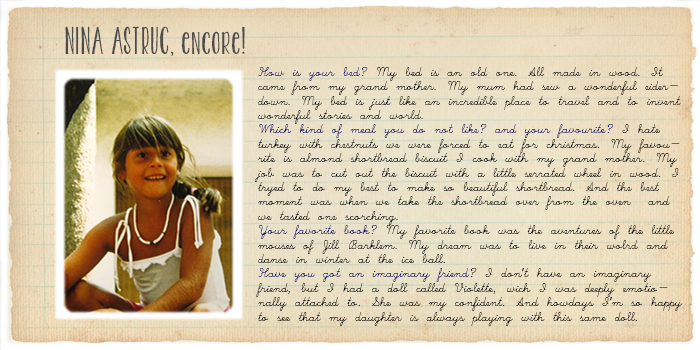 NINA ASTRUC, encore!
How is your bed? My bed is an old one. All made in wood. It
came from my grand mother. My mum had sew a wonderful eider-
down. My bed is just like an incredible place to travel and to invent
wonderful stories and world.
Which kind of meal you do not like? and your favourite? I hate
turkey with chestnuts we were forced to eat for christmas. My favou-
rite is almond shortbread biscuit I cook with my grand mother. My
job was to cut out the biscuit with a little serrated wheel in wood. I
tryed to do my best to make so beautiful shortbread. And the best
moment was when we take the shortbread over from the oven and
we tasted one scorching.
Your favorite book? My favorite book was the aventures of the little
mouses of Jill Barklem. My dream was to live in their wolrd and
danse in winter at the ice ball.
Have you got an imaginary friend? I don't have an imaginary
friend, but I had a doll called Violette, wich I was deeply emotio-
nally attached to. She was my confident. And howdays I'm so happy
to see that my daughter is always playing with this same doll.